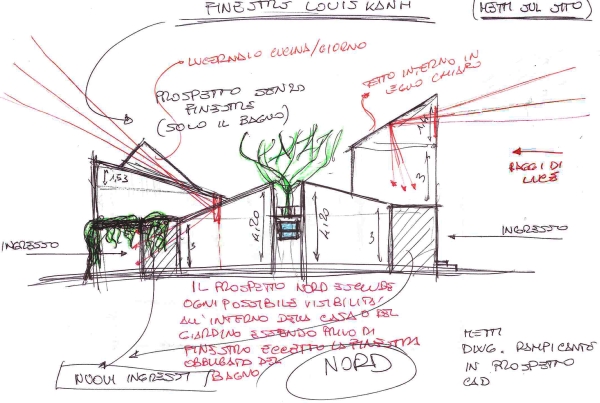 FINESTRE LOUIS KAHN
(METTI SUL SITO)
LUCERNAIO CUCINA/GIORNO
PROSPETTO SENZA
FINESTRE
(SOLO IL BAGNO)
TETTO INTERNO IN
LEGNO CHIARO
1,53
3
RAGGI DI
LUCE
INGRESSO
3
4,20
4,20
3
INGRESSO
IL PROSPETTO NORD ESCLUDE
OGNI POSSIBILE VISIBILITA'
ALL'INTERNO DELLA CASA O DEL
GIARDINO ESSENDO PRIVO DI
FINESTRE ECCETTO LA FINESTRA
OBBLIGATA DEL
BAGNO
NUOVI INGRESSI
NORD
METTI
DIWG. RAMPICANTE
IN PROSPETTO
CAD